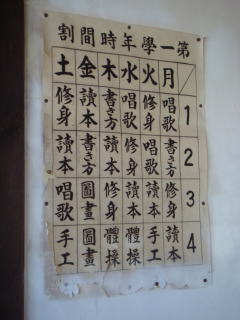 第一學年時間割
月 火 水 木 金 土
1 唱歌 修身 唱歌 書き方 讀本 修身
2 書き方 唱歌 修身 讀本 書き方 讀本
3 修身 讀本 讀本 修身 圖畫 唱歌
4 讀本 手工 體操 體操 圖畫 手工